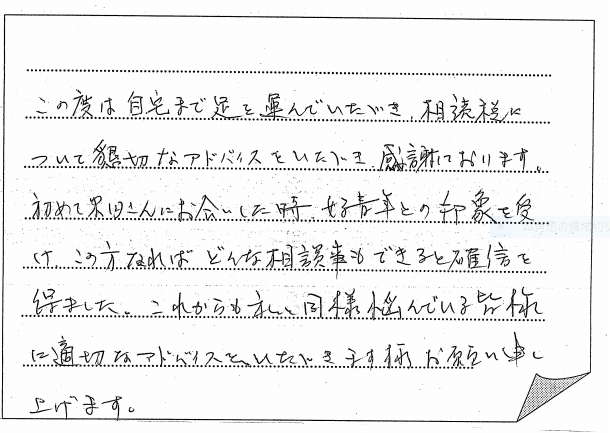 この度は自宅まで足を運んでいただき、相談税に
ついて懇切なアドバイスをいただき感謝しております。
初めて米田さんにお会いした時、好青年との印象を受
け、この方なればどんな相談事もできると確信を
得ました。これからも私と同様悩んでいる皆様
に適切なアドバイスを、いただきます様お願い申し
上げます。